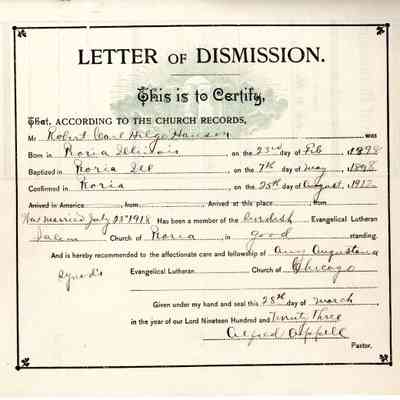 LETTER OF DISMISSION.
This is to Certify,
That, ACCORDING TO THE CHURCH RECORDS,
Mr Robert Carl Hilge Hansen was
Born in Peoria Illinois, on the 23rd day of Feb, 1898
Baptized in Peoria Ill, on the 7th day of May, 1898
Confirmed in Peoria, on the 25th day of August, 1912
Arrived in America, from Arrived at this place, from
Was married July 25th 1918 Has been a member of the Swedish Evangelical Lutheran
Salem Church of Peoria in good standing.
And is hereby recommended to the affectionate care and fellowship of Augustana
Synod's Evangelical Lutheran Church of Chicago
Given under my hand and seal this 28th day of March,
in the year of our Lord Nineteen Hundred and Twenty Three
Alfred Appell
Pastor.